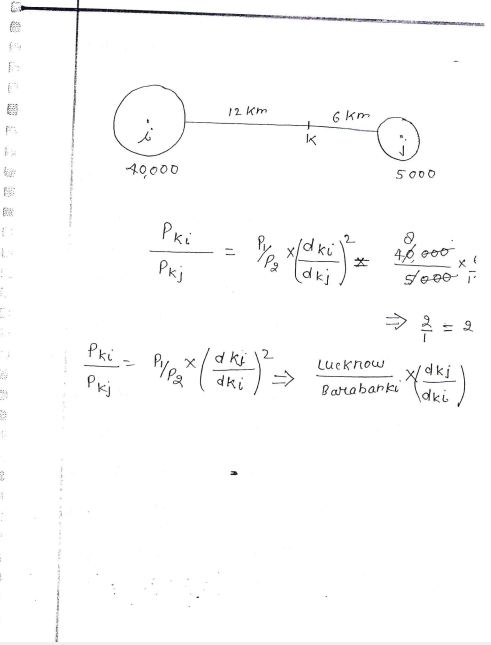 12 Km 6 Km
i K j
40,000 5000
Pki/Pkj = P1/P2 × (dki/dkj)² = 40,000/5000 ×
8
⇒ 2/1 = 2
Pki/Pkj = P1/P2 × (dkj/dki)² ⇒ Lucknow/Barabanki × (dkj/dki)